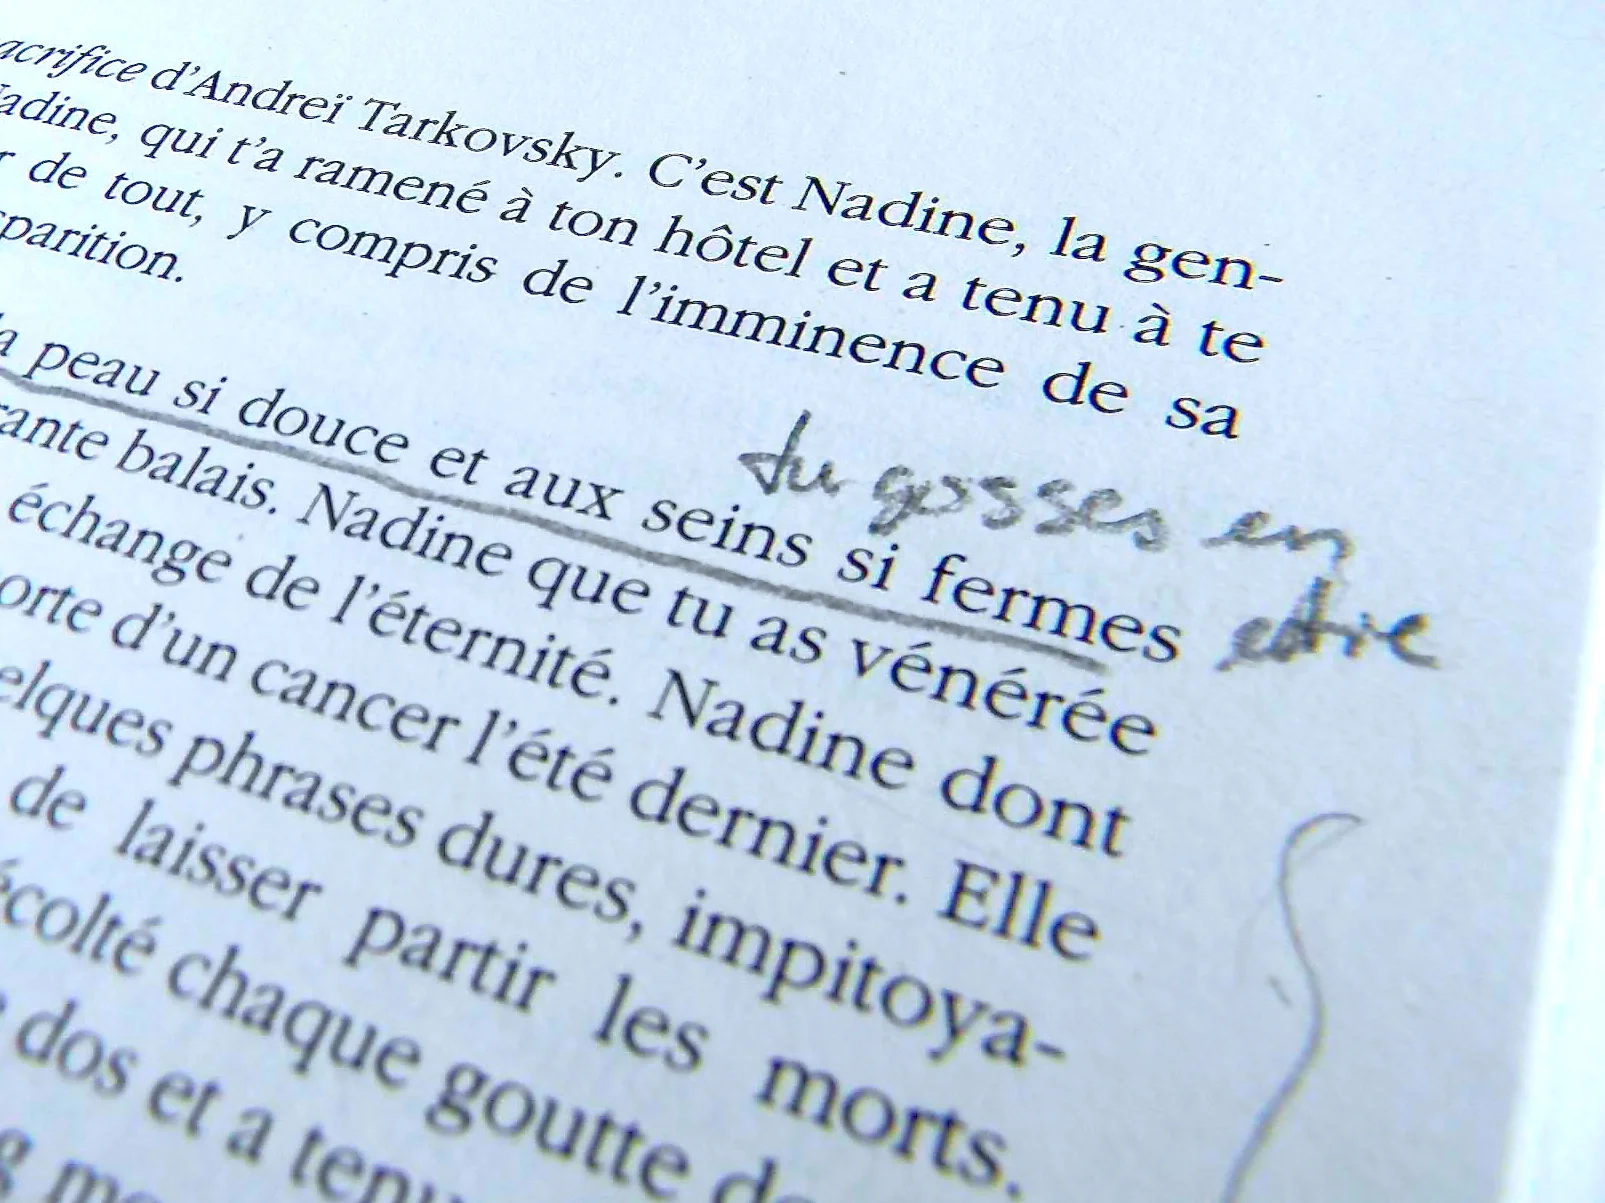 acrifice d'Andreï Tarkovsky. C'est Nadine, la gen-
adine, qui t'a ramené à ton hôtel et a tenu à te
r de tout, y compris de l'imminence de sa
sparition.
a peau si douce et aux seins si fermes
rante balais. Nadine que tu as vénérée
échange de l'éternité. Nadine dont
orte d'un cancer l'été dernier. Elle
elques phrases dures, impitoya-
de laisser partir les morts.
écolté chaque goutte de
dos et a tenu
tu gosses en